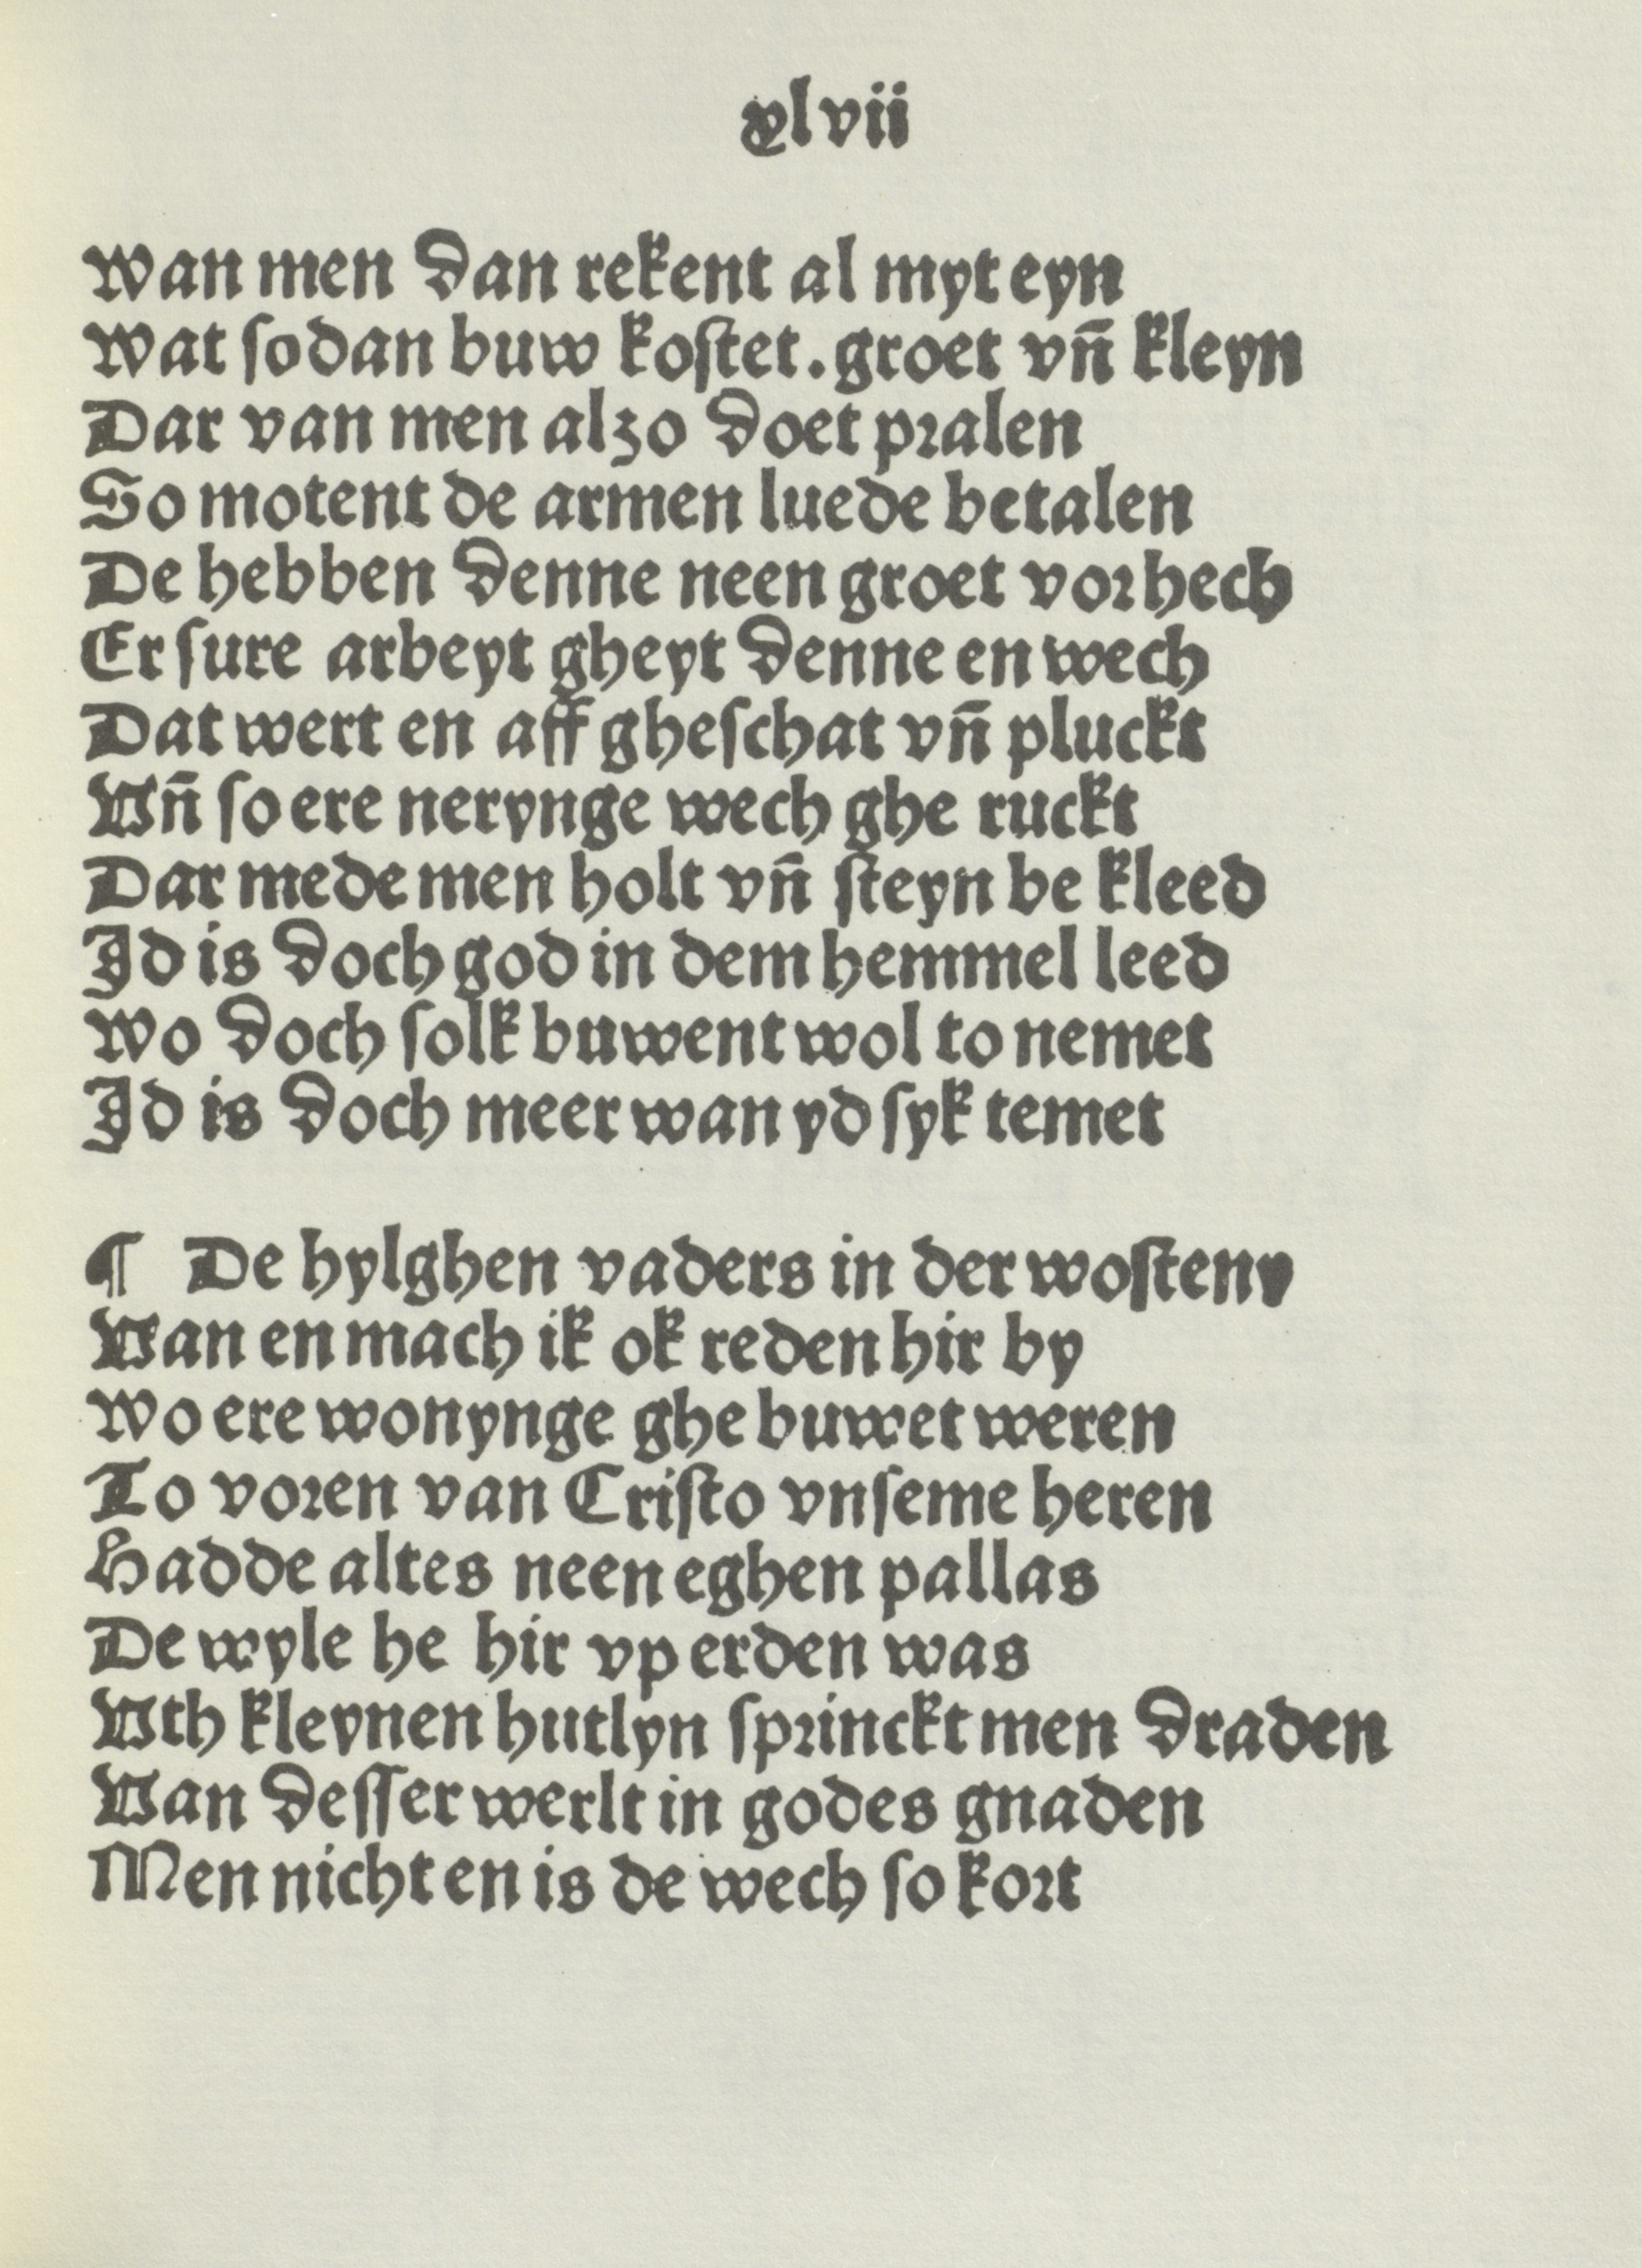 xlvii
Wan men dan rekent al myt eyn
Wat ſodan buw koſtet. groet vn̄ kleyn
Dar van men alzo doet pꝛalen
So motent de armen luede betalen
De hebben denne neen groet voꝛhech
Er ſure arbeyt gheyt denne en wech
Dat wert en aff gheſchat vn̄ pluckt
Vn̄ ſo ere nerynge wech ghe ruckt
Dar mede men holt vn̄ ſteyn be kleed
Id is doch god in dem hemmel leed
Wo doch ſolk buwent wol to nemet
Id is doch meer wan yd ſyk temet
¶ De hylghen vaders in der woſteny
Van en mach ik ok reden hir by
Wo ere wonynge ghe buwet weren
To voꝛen van Criſto vnſeme heren
Hadde altes neen eghen pallas
De wyle he hir vp erden was
Vth kleynen hutlyn ſpꝛinckt men draden
Van deſſer werlt in godes gnaden
Men nicht en is de wech ſo koꝛt